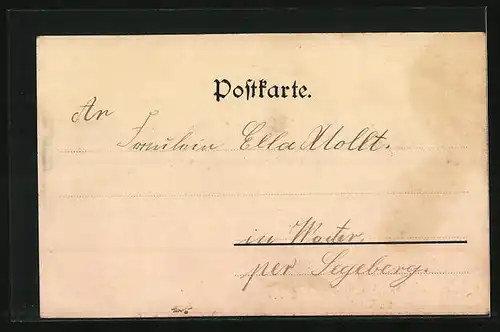 Postkarte.
An
Fräulein Ella Mollt.
in
per Segeberg.